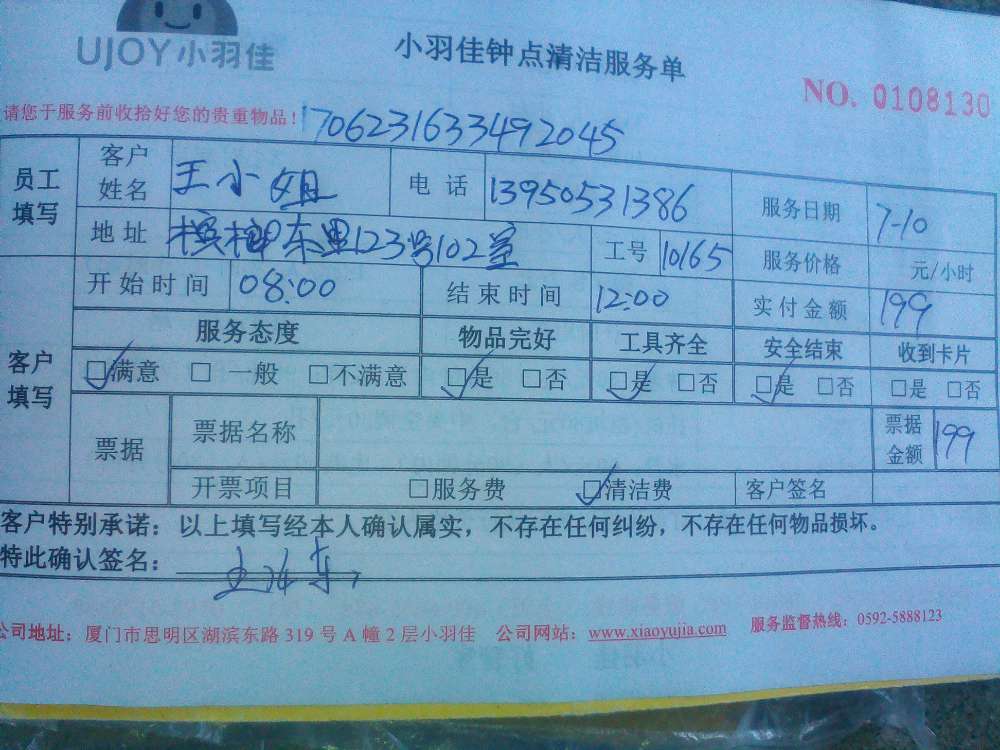 UJOY小羽佳
小羽佳钟点清洁服务单
NO. 0108130
请您于服务前收拾好您的贵重物品！ 1706231633492045
员工填写 客户姓名 王小姐 电话 13950531386 服务日期 7-10
地址 槟榔东里123号102室 工号 10165 服务价格 元/小时
客户填写 开始时间 08:00 结束时间 12:00 实付金额 199
服务态度 物品完好 工具齐全 安全结束 收到卡片
☑满意 □一般 □不满意 ☑是 □否 ☑是 □否 ☑是 □否 □是 □否
票据 票据名称 票据金额 199
开票项目 □服务费 ☑清洁费 客户签名
客户特别承诺：以上填写经本人确认属实，不存在任何纠纷，不存在任何物品损坏。
特此确认签名：
公司地址：厦门市思明区湖滨东路 319 号 A 幢 2 层小羽佳 公司网站：www.xiaoyujia.com 服务监督热线：0592-5888123